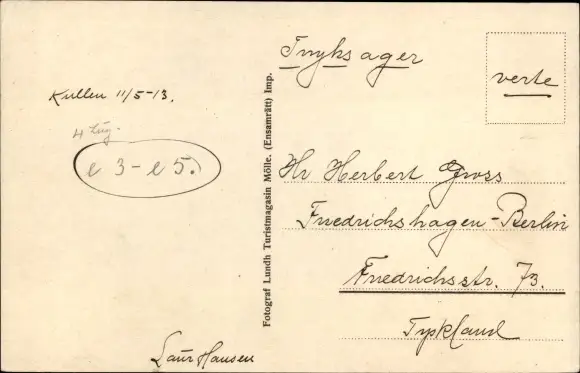 Kullen 11/5-13.
4 Zug.
e 3 - e 5.
Laur Hansen
Fotograf Lundh Turistmagasin Mölle. (Ensamrätt) Imp.
Tryksager
verte
Hr Herbert Gross
Friedrichshagen-Berlin
Friedrichsstr. 73.
Tyskland